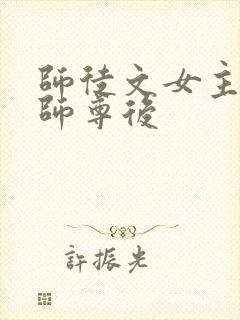 師徒文女主
師尊後
許振光